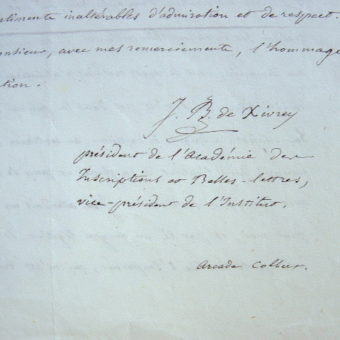 sentiments inaltérables d'admiration et de respect.
monsieur, avec mes remerciements, l'hommage
tion.
J. B. de Xivrey
président de l'académie des
Inscriptions et Belles-lettres,
vice-président de l'Institut.
arcade Colbert.